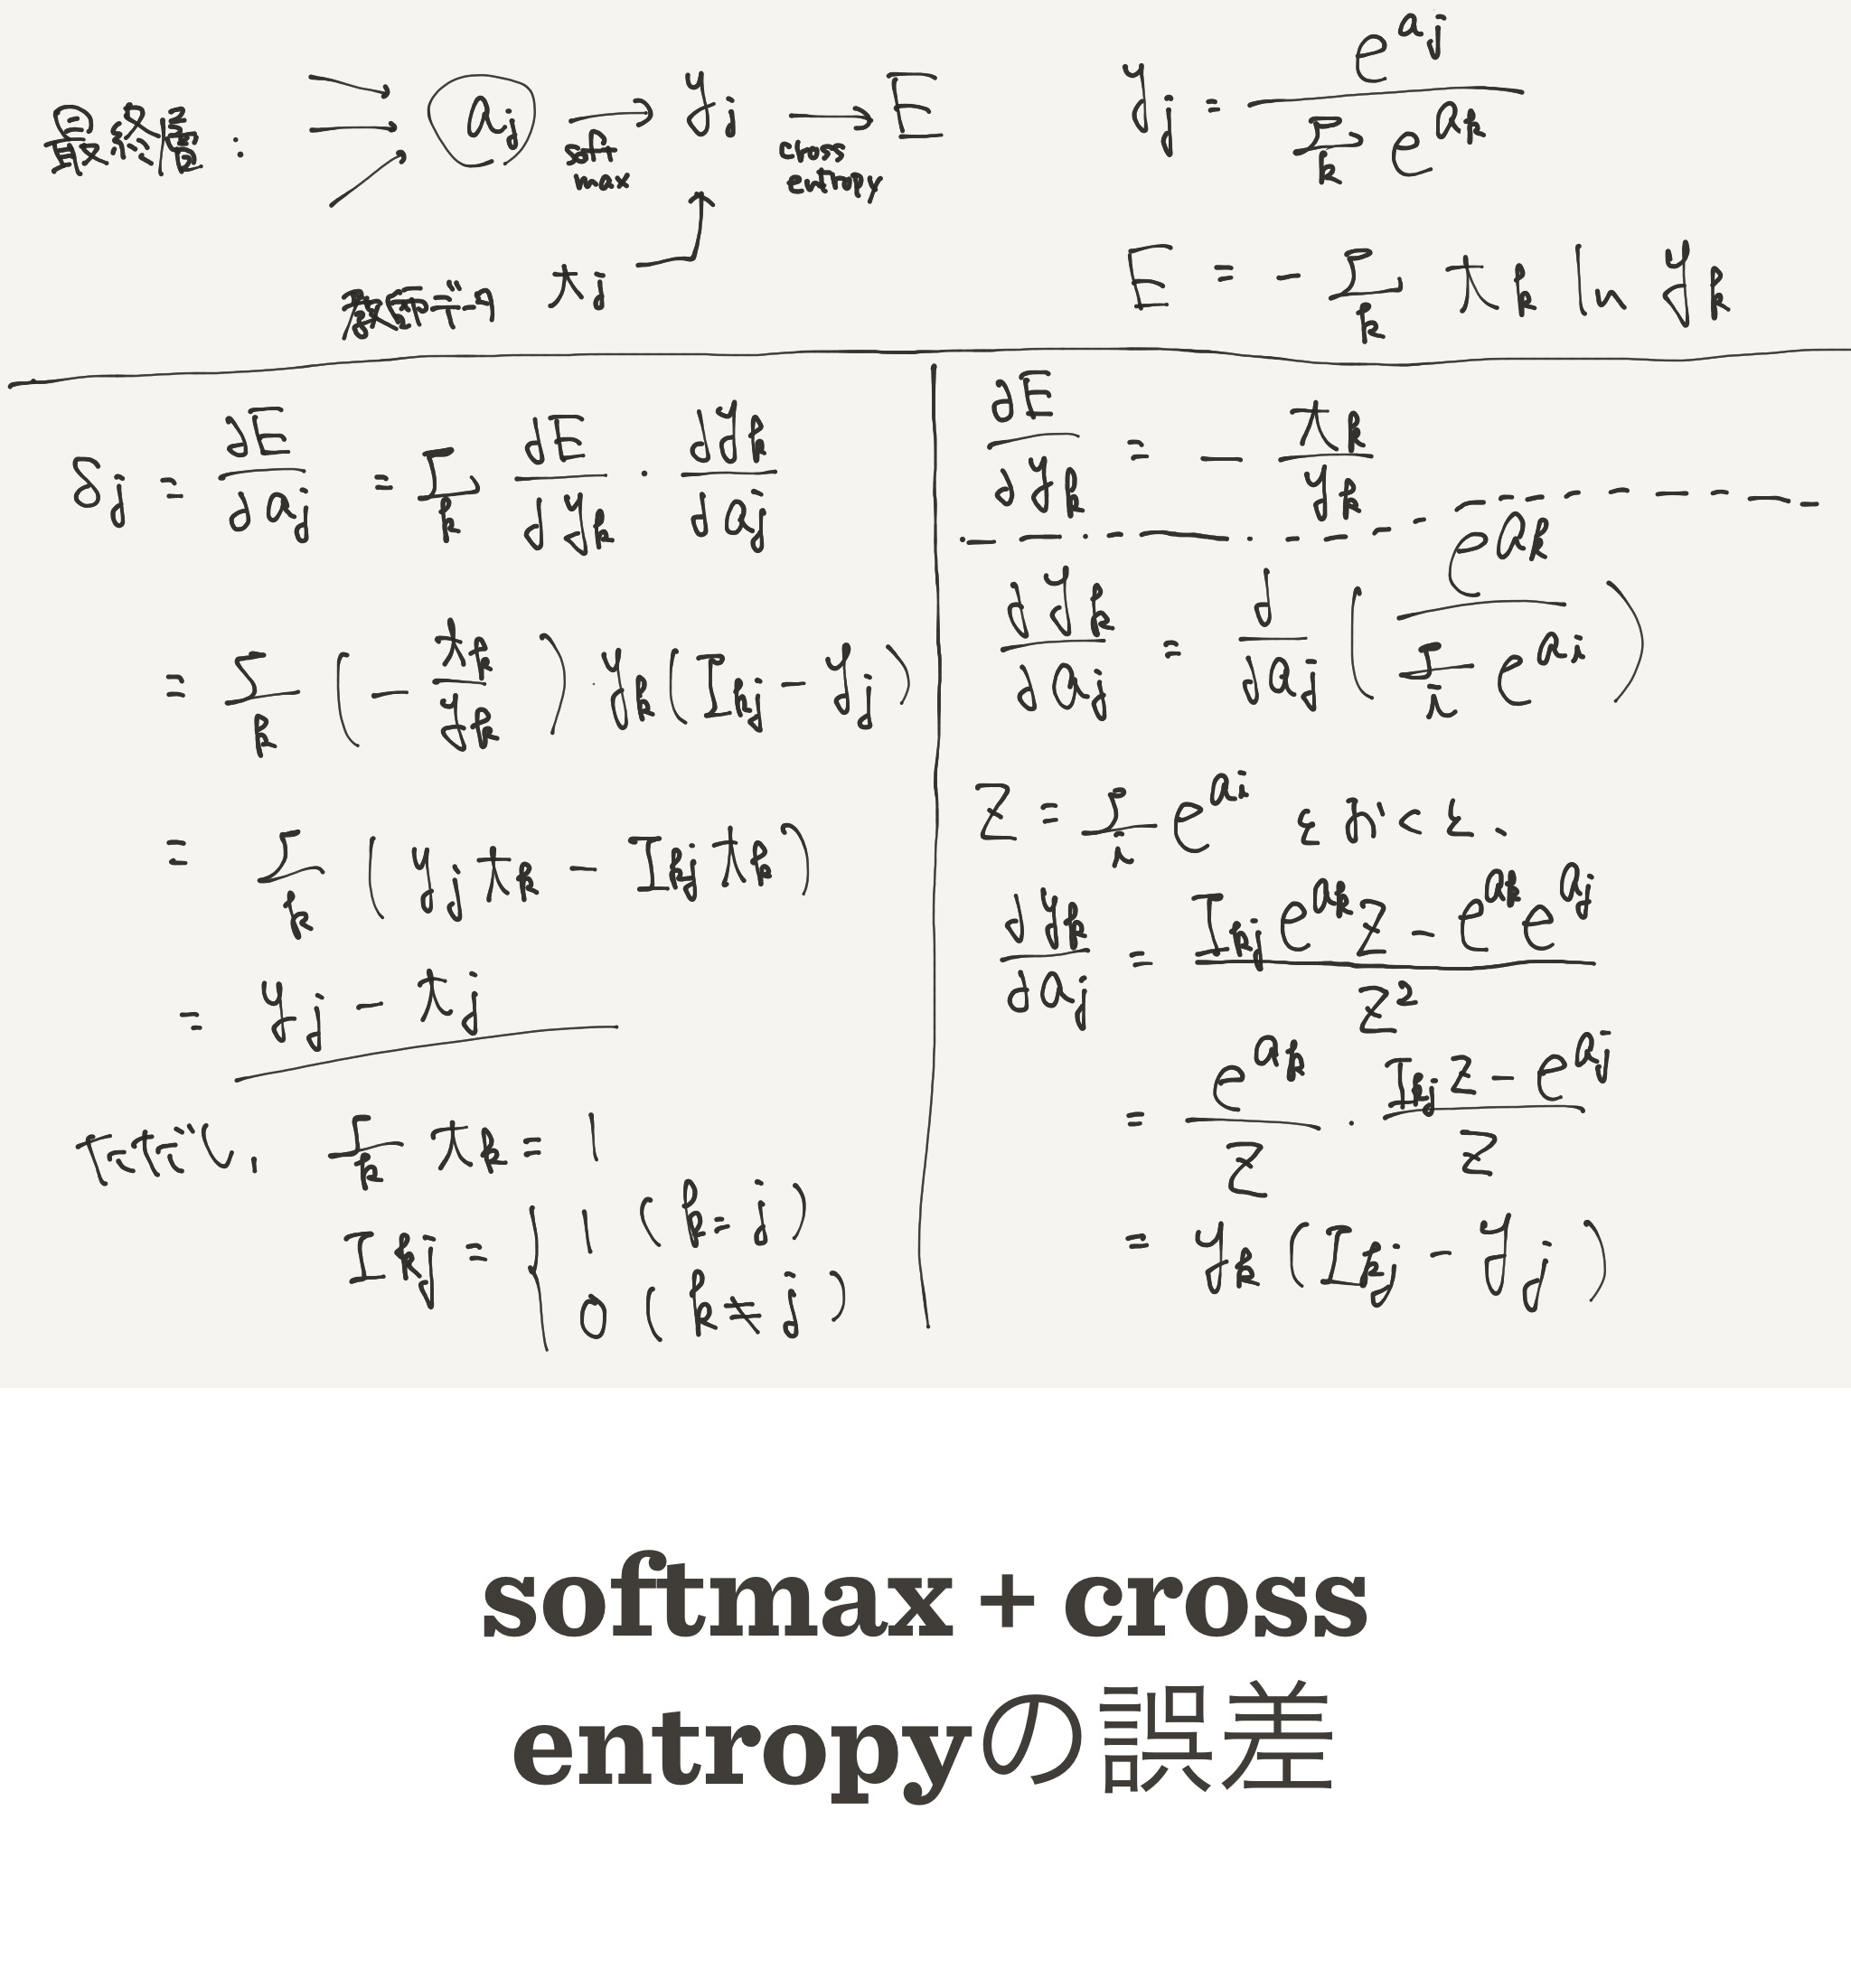 最終層: → a_j →(softmax) y_j →(cross entropy) E
教師データ t_j
y_j = e^{a_j} / Σ_k e^{a_k}
E = - Σ_k t_k ln y_k
δ_j = ∂E/∂a_j = Σ_k ∂E/∂y_k · ∂y_k/∂a_j
= Σ_k (- t_k/y_k) · y_k (I_kj - y_j)
= Σ_k (y_j t_k - I_kj t_k)
= y_j - t_j
ただし、 Σ_k t_k = 1
I_kj = { 1 (k = j)
0 (k ≠ j)
∂E/∂y_k = - t_k/y_k
∂y_k/∂a_j = ∂/∂a_j ( e^{a_k} / Σ_i e^{a_i} )
Z = Σ_i e^{a_i} とおくと、
∂y_k/∂a_j = (I_kj e^{a_k} Z - e^{a_k} e^{a_j}) / Z²
= e^{a_k}/Z · (I_kj Z - e^{a_j})/Z
= y_k (I_kj - y_j)
softmax + cross
entropyの誤差